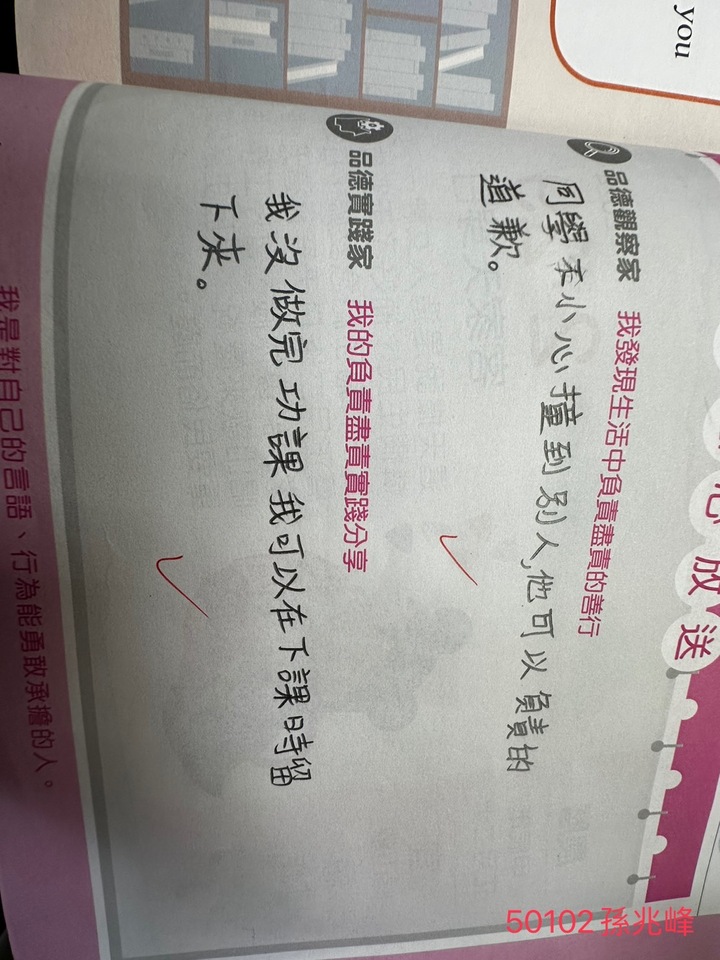 you
心放送
品德觀察家 我發現生活中負責盡責的善行
同學不小心撞到別人,他可以負責的
道歉。
品德實踐家 我的負責盡責實踐分享
我沒做完功課我可以在下課時留
下來。
我是對自己的言語、行為能勇敢承擔的人。
50102孫兆峰